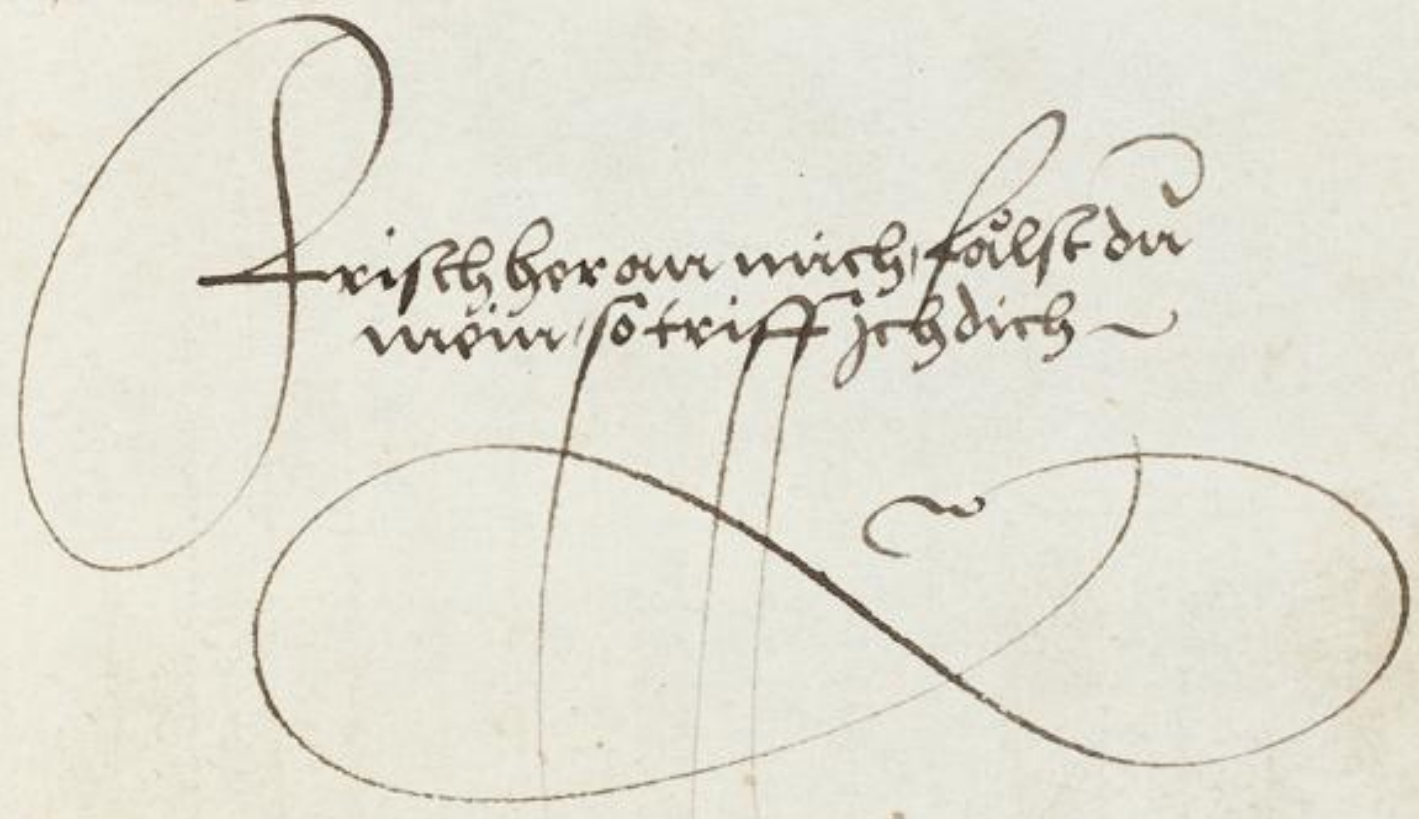 Frisch her an mich, fålst du
mein, so triff jch dich